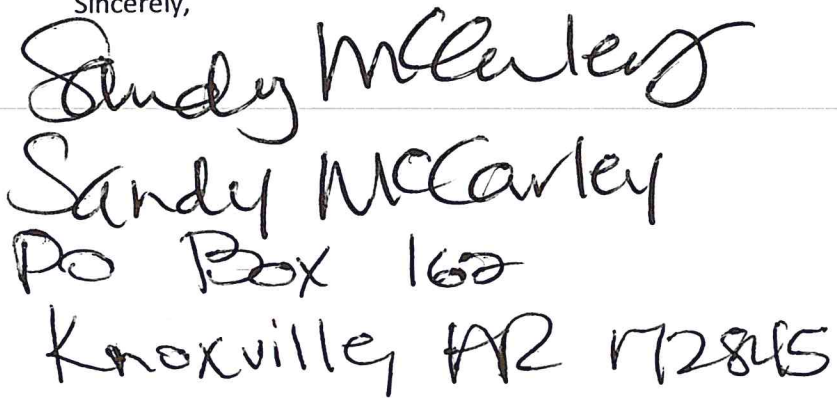 Sincerely,
Sandy McCarley
Sandy McCarley
PO Box 162
Knoxville, AR 72845